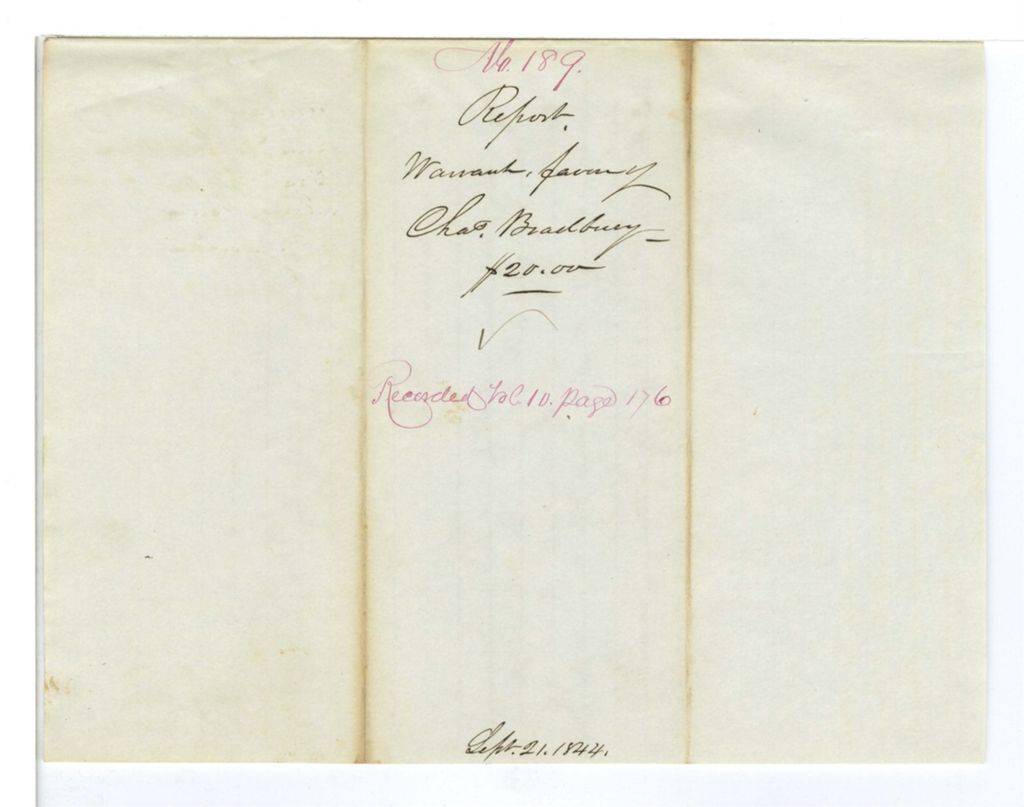 No. 189.
Report.
Warrant, favor of
Chas. Bradbury
$20.00
Recorded Vol. 10. page 176
Sept. 21. 1844.